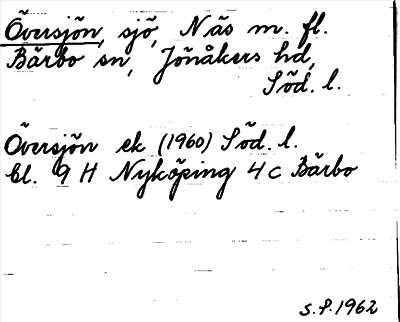 Översjön, sjö, Näs m. fl.
Bärbo sn, Jönåkers hd,
Söd. l.
Översjön ek (1960) Söd. l.
bl. 9 H Nyköping 4 c Bärbo
S.P. 1962